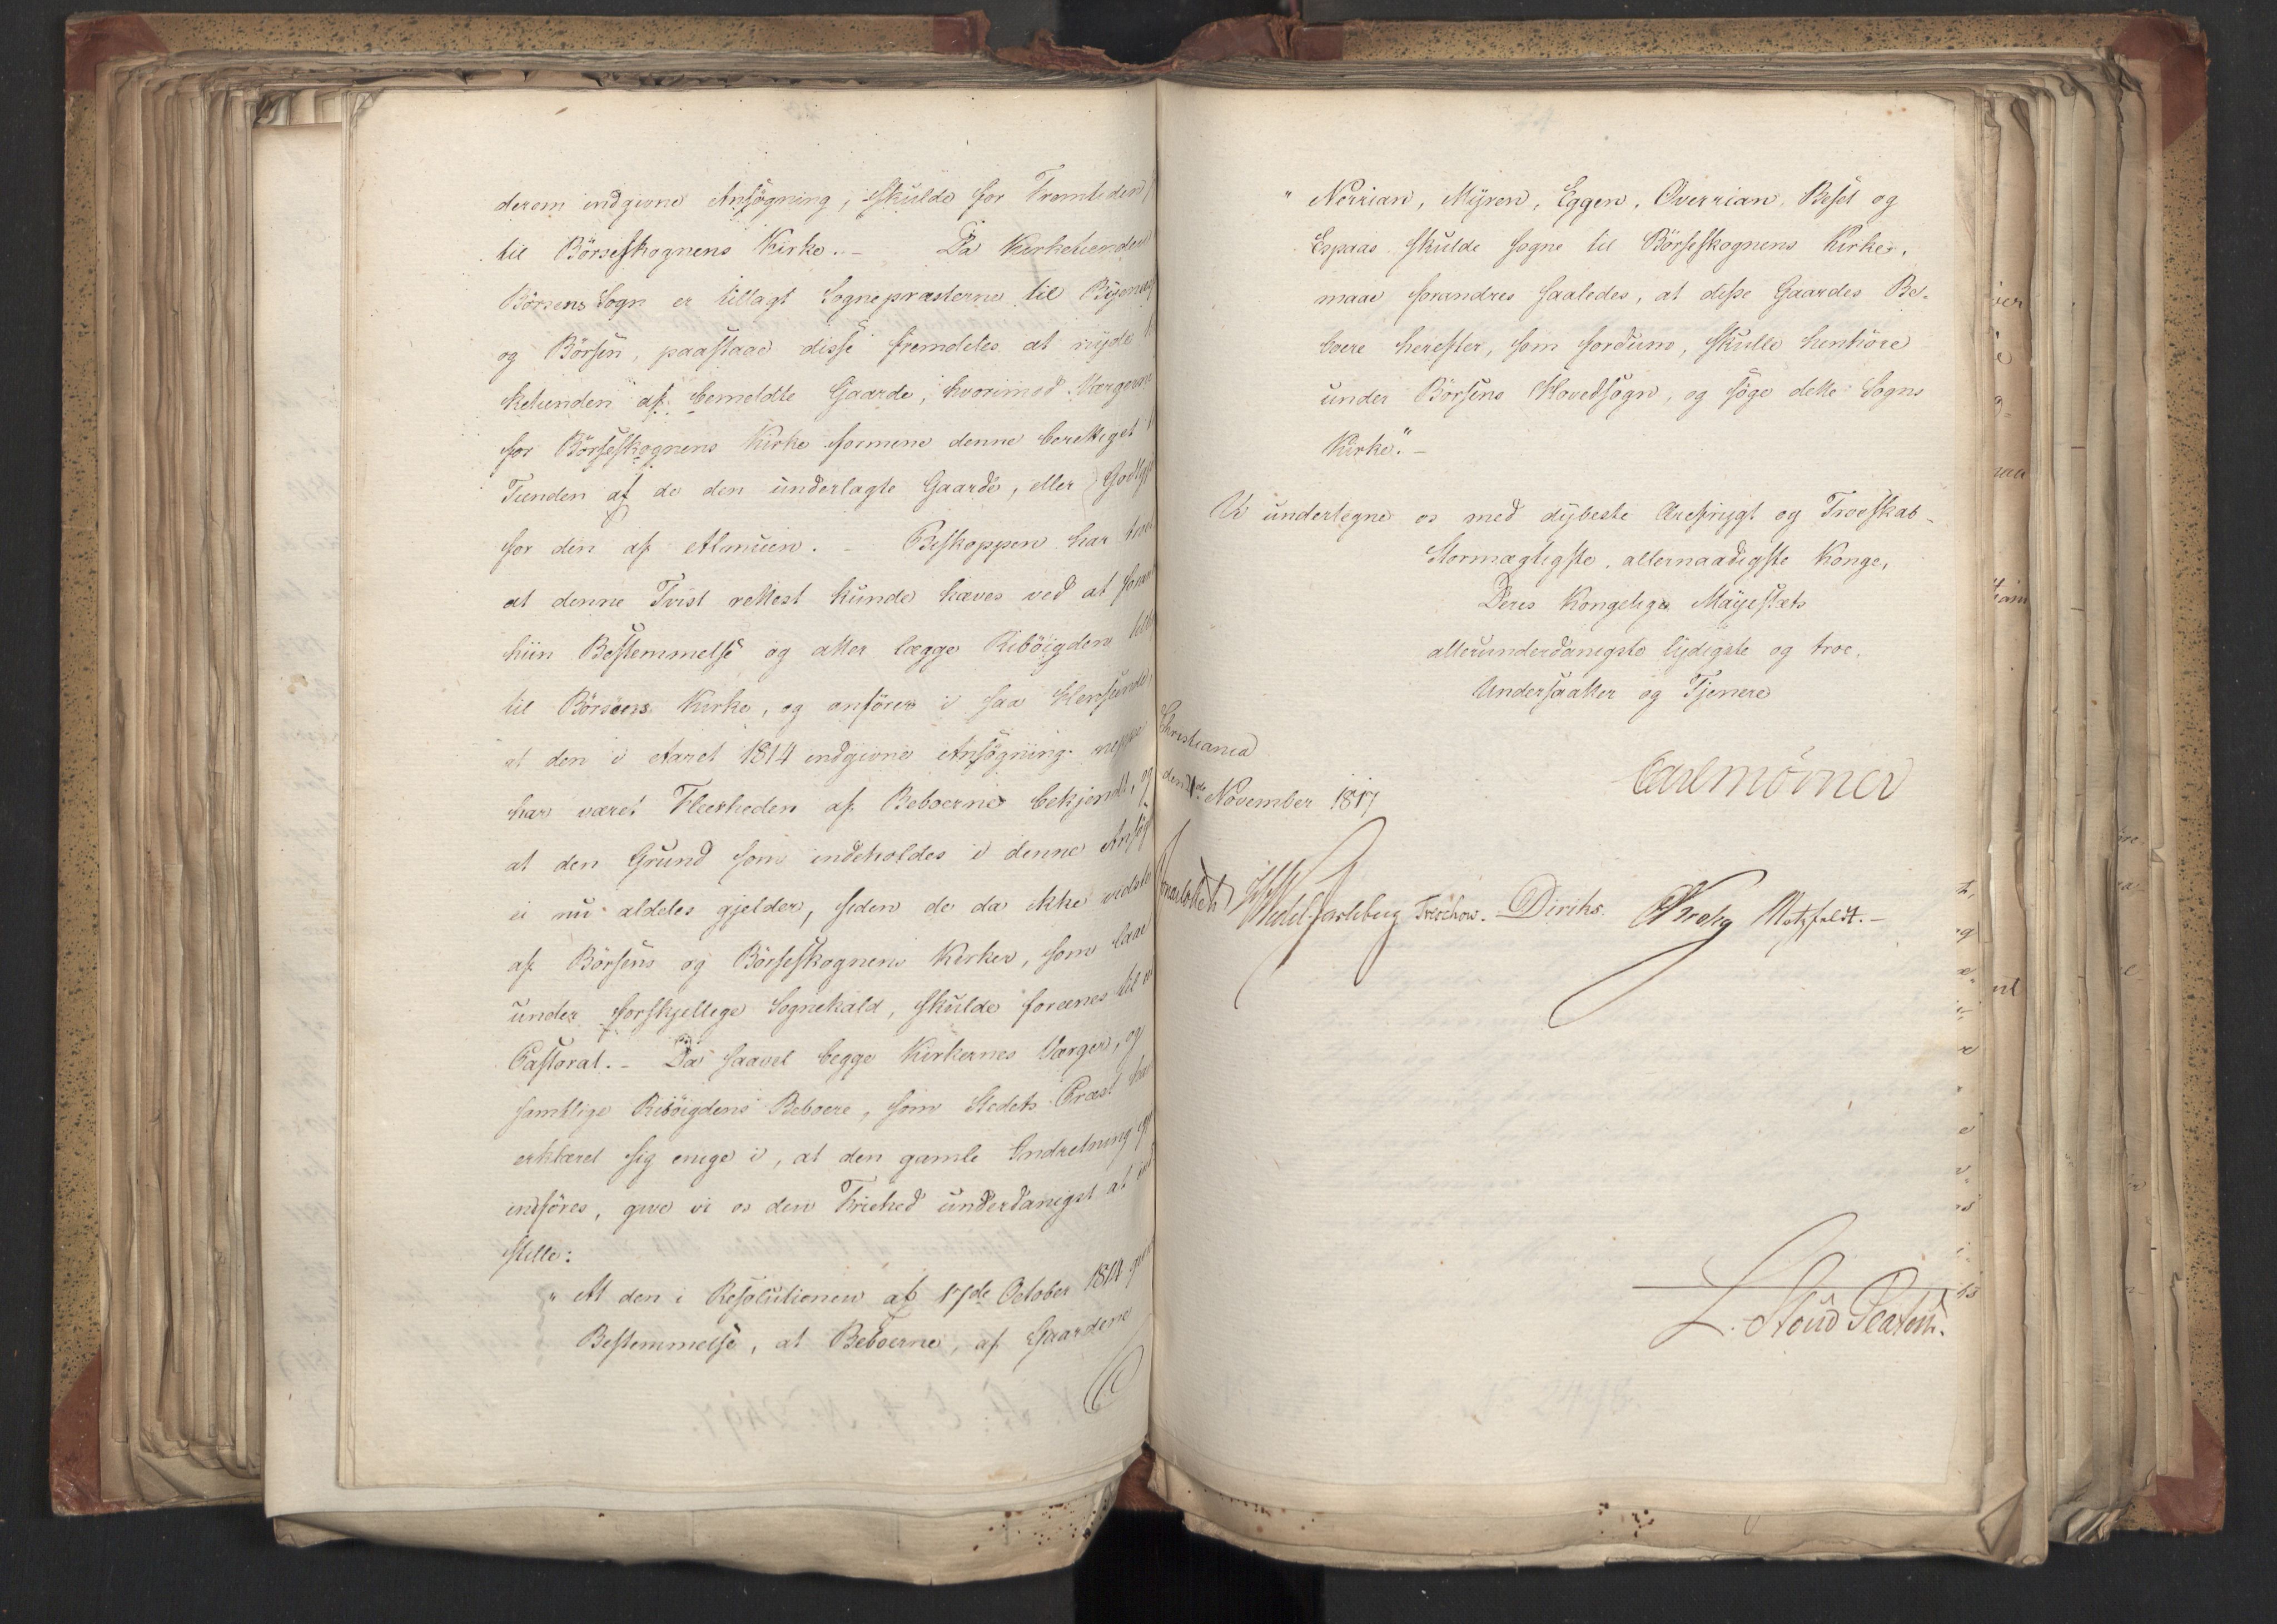 derom indgivne Ansøgning, skulde for Fremtiden
til Börseskognens Kirke. – Da Kirketienden
Börsens Sogn er tillagt Sognepræsterne til
og Börsen, paastaae disse fremdeles at nyde
ketienden af bemeldte Gaarde, hvorimod Værgerne
for Börseskognens Kirke formene denne berettiget
Tienden af de den underlagte Gaarde, eller
for den af Almuen. – Biskoppen har
at denne Tvist rettest kunde hæves ved at
hiin Bestemmelse og atter lægge Riböigden
til Börsens Kirke, og anförer i saa Henseende,
at den i Aaret 1814 indgivne Ansøgning neppe
har været Fleerheden af Beboerne bekjendt, og
at den Grund som indeholdes i denne
ei nu aldeles gjelder, siden de da ikke vidste
af Börsens og Börseskognens Kirker, som laae
under forskjellige Sognekald, skulde foreenes til
Pastorat. – Da saavel begge Kirkernes Værger, og
samtlige Riböigdens Beboere, som Stedets Præst har
erklæret sig enige i, at den gamle Indretning
indföres, give vi os den Frihed underdanigst at
stille:
"At den i Resolutionen af 17de October 1814
Bestemmelse, at Beboerne, af Gaardene
" Norrian, Myren, Eggen, Overrian, Beset og
Espaas skulde sogne til Börseskognens Kirke,
maae forandres saaledes, at disse Gaardes Be-
boere herefter, som fordum, skulle henhöre
under Börsens Hovedsogn, og söge dette Sogns
Kirke". –
Vi undertegne os med dybeste Ærefrygt og Troeskab –
Stormægtigste, allernaadigste Konge,
Deres Kongelige Mayestæts
allerunderdanigste lydigste og troe
Undersaatter og Tjenere
Christiania
den November 1817
Carl Mörner
Wedel Jarlsberg Treschow. Diriks. Krohg Motzfeldt. –
L. Stoud Platou.